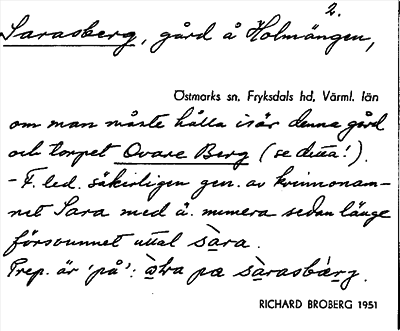 2.
Sarasberg, gård å Holmängen,
Östmarks sn, Fryksdals hd, Värml. län
om man måste hålla isär denna gård
och torpet Ovare Berg (se detta!).
- F. led. säkerligen gen. av kvinnonam-
net Sara med å. numera sedan länge
försvunnet uttal sàra.
Prep. är 'på': pa sàrasbærg.
RICHARD BROBERG 1951